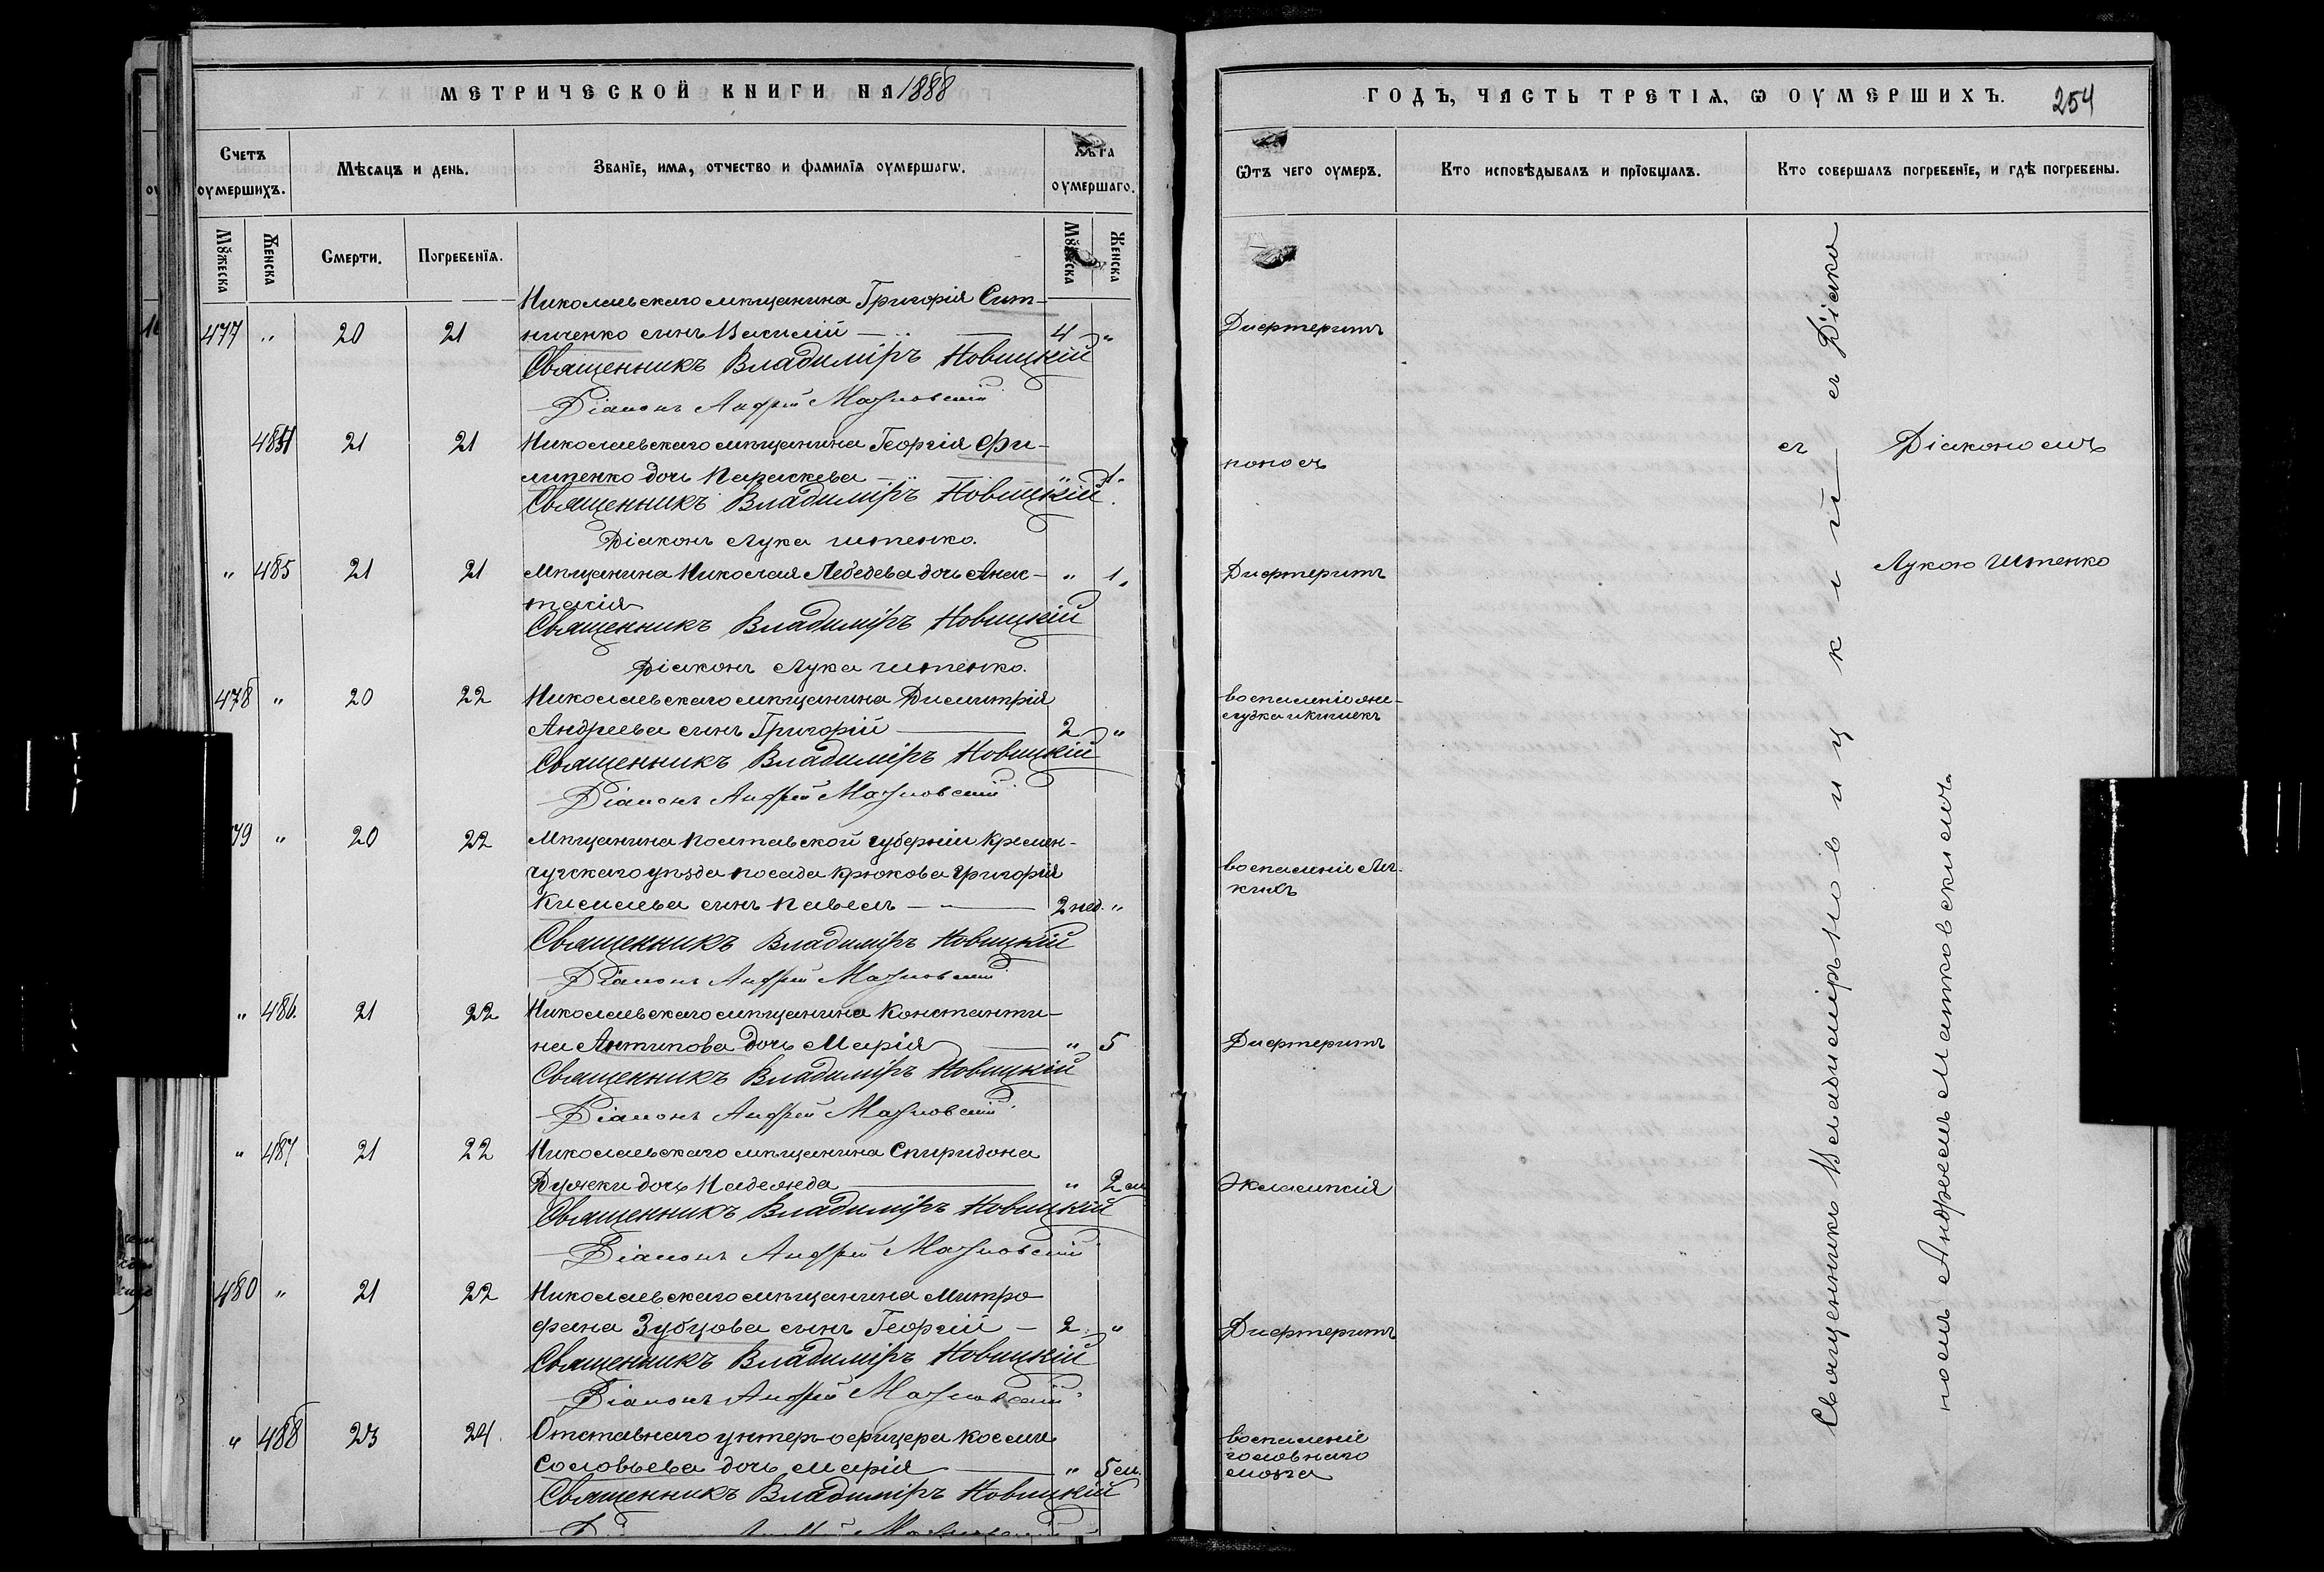 МЕТРИЧЕСКОЙ КНИГИ НА 1888
Счетъ оумершихъ.
Мѣсяцъ и день.
Званіе, имя, отчество и фамилія оумершагѡ.
Лѣта оумершаго.
Мꙋжеска
Женска
Смерти.
Погребенія.
Мꙋжеска
Женска
Николаевскаго мѣщанина Григорія Сит-
477 " 20 21 ниченко сынъ Василій — 4 "
Священникъ Владиміръ Новицкій
Діаконъ Андрей Матковскій
484 21 21 Николаевскаго мѣщанина Георгія Фи-
липенко дочь Параскева — " 1.
Священникъ Владиміръ Новицкій.
Діаконъ Лука Штенко.
" 485 21 21 Мѣщанина Николая Лебедева дочь Анас- " 1.
тасія
Священникъ Владиміръ Новицкій
Діаконъ Лука Штенко.
478 " 20 22 Николаевскаго мѣщанина Димитрія
Андреева сынъ Григорій — 2 "
Священникъ Владиміръ Новицкій
Діаконъ Андрей Матковскій
79 " 20 22 Мѣщанина Полтавской губерніи Кремен-
чугскаго уѣзда посада Крюкова Григорія
Киселева сынъ Павелъ — 2 нед. "
Священникъ Владиміръ Новицкій
Діаконъ Андрей Матковскій
" 486. 21 22 Николаевскаго мѣщанина Константи-
на Антипова дочь Марія — " 5
Священникъ Владиміръ Новицкій
Діаконъ Андрей Матковскій
" 487 21 22 Николаевскаго мѣщанина Спиридона
Дужки дочь Надежда — " 2 м
Священникъ Владиміръ Новицкій
Діаконъ Андрей Матковскій
480 " 21 22 Николаевскаго мѣщанина Митро-
фана Зубцова сынъ Георгій — 2. "
Священникъ Владиміръ Новицкій
Діаконъ Андрей Матковскій
" 488 23 24. Отставнаго унтеръ-офицера Космы
Соловьева дочь Марія — " 5 м.
Священникъ Владиміръ Новицкій
ГОДЪ, ЧАСТЬ ТРЕТІЯ, Ѡ ОУМЕРШИХЪ. 254
Ѿтъ чего оумеръ.
Кто исповѣдывалъ и прїобщалъ.
Кто совершалъ погребенїе, и гдѣ погребены.
Дифтеритъ
поносъ
Дифтеритъ
воспаленіе же-
лудка и кишекъ
воспаленіе лег-
кихъ
Дифтеритъ
Эклампсія
Дифтеритъ
воспаленіе
головнаго
мозга
Священникъ Владиміръ Новицкій съ Діако
номъ Андреемъ Матковскимъ.
съ Діакономъ
Лукою Штенко